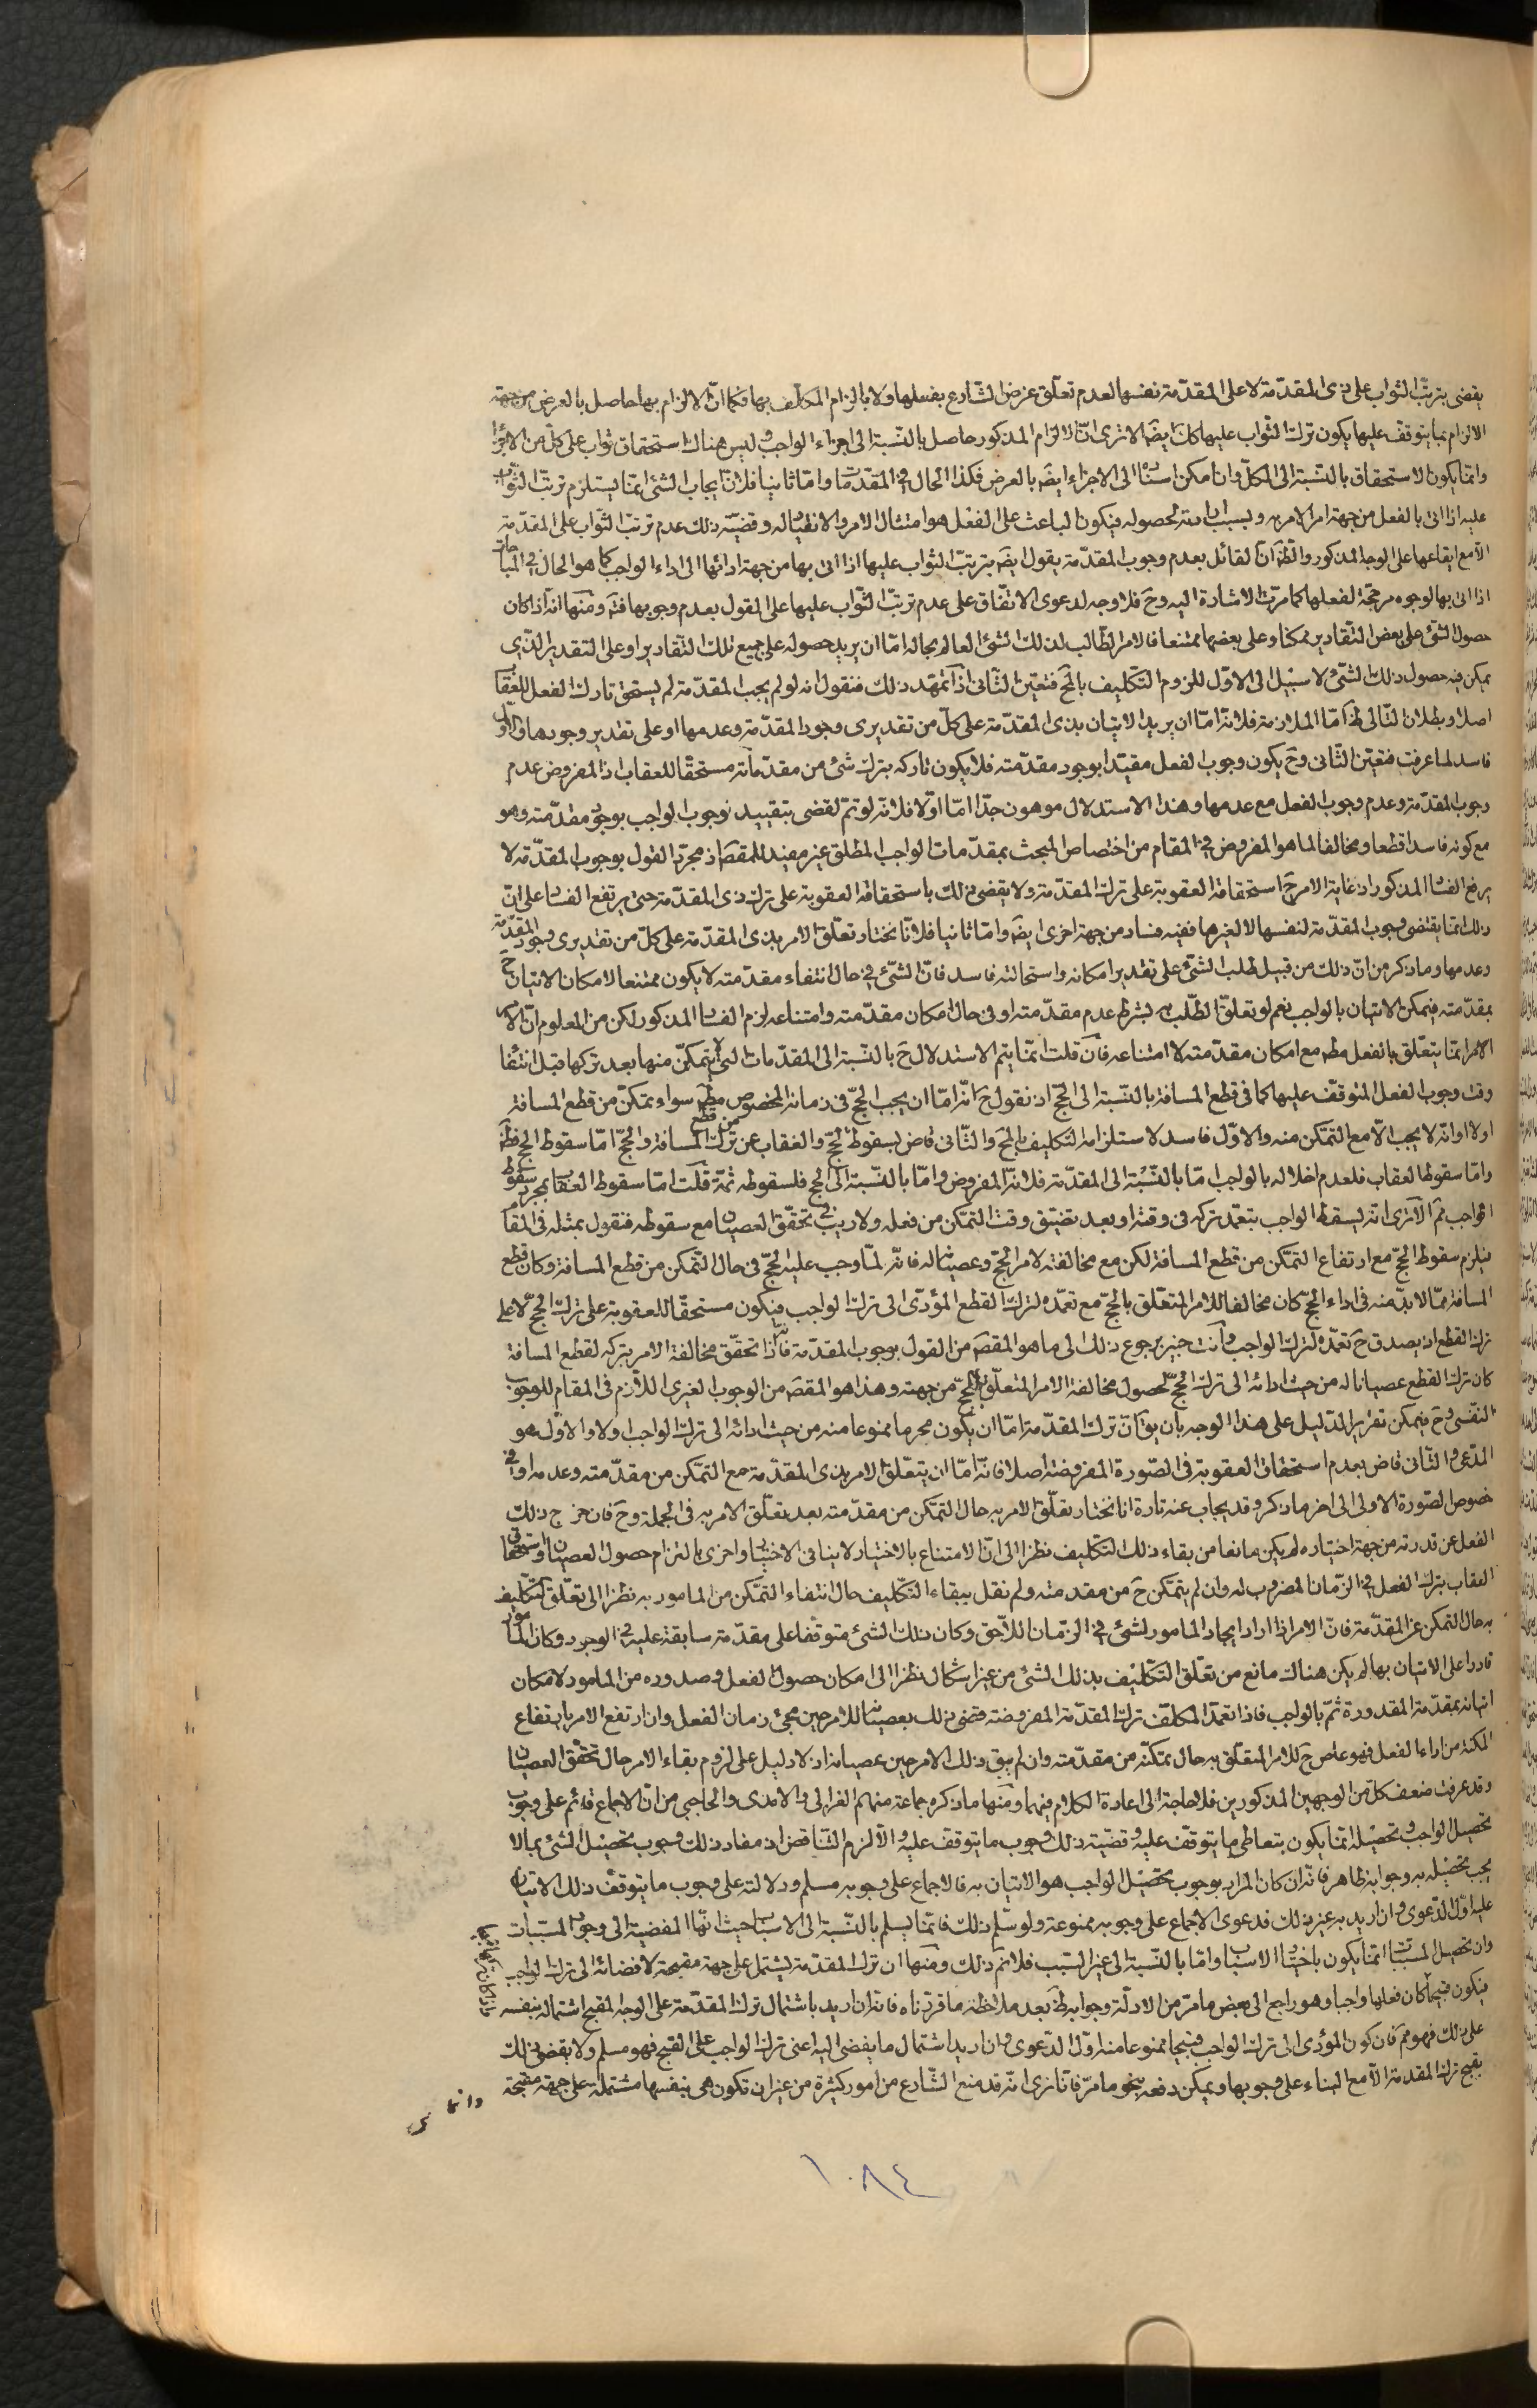 يقضى بترتب الثواب على ذى المقدمة لا على المقدمة نفسها لعدم تعلق غرض الشارع بفعلها ولا بالزام المكلف بها فكما ان الالزام بها حاصل بالعرض من جهة
الالزام بما يتوقف عليها يكون ترتب الثواب عليها كك ايضا الا ترى ان الالزام المذكور حاصل بالنسبة الى اجزاء الواجب وليس هناك استحقاق ثواب على كل من الاجزاء
وانما يكون الاستحقاق بالنسبة الى الكل وان امكن اسناده الى الاجزاء ايضا بالعرض فكذا الحال فى المقدمات واما ثانيا فلان ايجاب الشئ انما يستلزم ترتب الثواب
عليه اذا اتى بالفعل من جهة امر الامر به وبسبب ارادته لحصوله فيكون الباعث على الفعل هو امتثال الامر والانقياد له وقضية ذلك عدم ترتب الثواب على المقدمة
الا مع ايقاعها على الوجه المذكور والظ ان القائل بعدم وجوب المقدمة يقول ايضا بترتب الثواب عليها اذا اتى بها من جهة ادائها الى اداء الواجب كما هو الحال فى المباحات
اذا اتى بها لوجوه مرجحة لفعلها كما مرت الاشارة اليه وح فلا وجه لدعوى الاتفاق على عدم ترتب الثواب عليها على القول بعدم وجوبها فتم ومنها انه اذا كان
حصول الشئ على بعض التقادير ممكنا وعلى بعضها ممتنعا فالامر الطالب لذلك الشئ العالم بحاله اما ان يريد حصوله على جميع تلك التقادير او على التقدير الذى
يمكن فيه حصول ذلك الشئ لا سبيل الى الاول للزوم التكليف بالمح فتعين الثانى اذا تمهد ذلك فنقول انه لو لم يجب المقدمة لم يستحق تارك الفعل للعقاب
اصلا وبطلان التالى ظ اما الملازمة فلانه اما ان يريد الاتيان بذى المقدمة على كل من تقديرى وجود المقدمة وعدمها او على تقدير وجودها والاول
فاسد لما عرفت فتعين الثانى وح يكون وجوب الفعل مقيدا بوجود مقدمته فلا يكون تاركه بترك شئ من مقدماته مستحقا للعقاب اذ المفروض عدم
وجوب المقدمة وعدم وجوب الفعل مع عدمها وهذا الاستدلال موهون جدا اما اولا فلانه لو تم لقضى بتقييد وجوب الواجب بوجوب مقدمته وهو
مع كونه فاسدا قطعا ومخالفا لما هو المفروض فى المقام من اختصاص المبحث بمقدمات الواجب المطلق غير مفيد للمقصد اذ مجرد القول بوجوب المقدمة لا
يرفع الفساد المذكور اذ غاية الامر ح استحقاقه العقوبة على ترك المقدمة ولا يقضى ذلك باستحقاقه العقوبة على ترك ذى المقدمة حتى يرتفع الفساد على ان
ذلك انما يقتضى وجوب المقدمة لنفسها لا لغيرها ففيه فساد من جهة اخرى ايضا واما ثانيا فلانا نختار تعلق الامر بذى المقدمة على كل من تقديرى وجود المقدمة
وعدمها وما ذكر من ان ذلك من قبيل طلب الشئ على تقدير امكانه واستحالته فاسد فان الشئ فى حال انتفاء مقدمته لا يكون ممتنعا لامكان الاتيان ح
بمقدمته فيمكن الاتيان بالواجب نعم لو تعلق الطلب به بشرط عدم مقدمته او فى حال امكان مقدمته وامتناعه لزم الفساد المذكور لكن من المعلوم ان
الامر انما يتعلق بالفعل مطم مع امكان مقدمته لا امتناعه فان قلت انما يتم الاستدلال ح بالنسبة الى المقدمات التى لا يتمكن منها بعد تركها قبل انتفاء
وقت وجوب الفعل المتوقف عليها كما فى قطع المسافة بالنسبة الى الحج اذ نقول ح انه اما ان يجب الحج فى زمانه المخصوص مطم سواء تمكن من قطع المسافة
اولا او انه لا يجب الا مع التمكن منه والاول فاسد لاستلزامه التكليف بالمح والثانى قاض بسقوط الحج والعقاب عن ترك قطع المسافة والحج اما سقوط الحج فظ
واما سقوط العقاب فلعدم اخلاله بالواجب اما بالنسبة الى المقدمة فلانه المفروض واما بالنسبة الى الحج فلسقوطه ثمة قلت اما سقوط العقاب بمجرد سقوط
الواجب فمم الا ترى انه يسقط الواجب بتعمد تركه فى وقته او بعد تضيق وقت التمكن من فعله ولا ريب فى تحقق العصيان مع سقوطه فنقول بمثله فى المقام
فيلزم سقوط الحج مع ارتفاع التمكن من قطع المسافة لكن مع مخالفته لامر الحج وعصيانه له فانه لما وجب عليه الحج فى حال التمكن من قطع المسافة وكان قطع
المسافة مما لا بد منه فى اداء الحج كان مخالفا للامر المتعلق بالحج مع تعمده لترك القطع المؤدى الى ترك الواجب فيكون مستحقا للعقوبة على ترك الحج لا على
ترك القطع اذ يصدق ح تعمده لترك الواجب وانت خبير برجوع ذلك الى ما هو المقصد من القول بوجوب المقدمة فانه اذا تحقق مخالفة الامر بتركه لقطع المسافة
كان ترك القطع عصيانا له من حيث ادائه الى ترك الحج لحصول مخالفة الامر المتعلق بالحج من جهته وهذا هو المقصد من الوجوب الغيرى اللازم فى المقام للوجوب
النفسى وح فيمكن تقرير الدليل على هذا الوجه بان يق ان ترك المقدمة اما ان يكون محرما ممنوعا منه من حيث ادائه الى ترك الواجب اولا والاول هو
المدعى والثانى قاض بعدم استحقاق العقوبة فى الصورة المفروضة اصلا فانه اما ان يتعلق الامر بذى المقدمة مع التمكن من مقدمته وعدمه او فى
خصوص الصورة الاولى الى اخر ما ذكر وقد يجاب عنه تارة انا نختار تعلق الامر به حال التمكن من مقدمته بعد تعلق الامر به فى الجملة وح فان خرج ذلك
الفعل عن قدرته من جهة اختياره لم يكن مانعا من بقاء ذلك التكليف نظرا الى ان الامتناع بالاختيار لا ينافى الاختيار واخرى بالتزام حصول العصيان واستحقاق
العقاب بترك الفعل فى الزمان المضروب له وان لم يتمكن ح من مقدمته ولم نقل ببقاء التكليف حال انتفاء التمكن من المامور به نظرا الى تعلق التكليف
به حال التمكن عن المقدمة فان الامر اذا اراد ايجاد المامور لشئ فى الزمان اللاحق وكان ذلك الشئ متوقفا على مقدمة سابقة عليه فى الوجود وكان المامور
قادرا على الاتيان بها لم يكن هناك مانع من تعلق التكليف بذلك الشئ من غير اشكال نظرا الى امكان حصول الفعل وصدوره من المامور لامكان
اتيانه بمقدمته المقدورة ثم بالواجب فاذا تعمد المكلف ترك المقدمة المفروضة قضى ذلك بعصيانه للامر حين مجئ زمان الفعل وان ارتفع الامر بارتفاع
المكنة من اداء الفعل فهو عاص ح للامر المتعلق به حال تمكنه من مقدمته وان لم يبق ذلك الامر حين عصيانه اذ لا دليل على لزوم بقاء الامر حال تحقق العصيان
وقد عرفت ضعف كل من الوجهين المذكورين فلا حاجة الى اعادة الكلام فيهما ومنها ما ذكره جماعة منهم الغزالى والامدى والحاجبى من ان الاجماع قائم على وجوب
تحصيل الواجب وتحصيله انما يكون بتعاطى ما يتوقف عليه وقضية ذلك وجوب ما يتوقف عليه والا لزم التناقض اذ مفاد ذلك وجوب تحصيل الشئ بما لا
يجب تحصيله به وجوابه ظاهر فانه ان كان المراد بوجوب تحصيل الواجب هو الاتيان به فالاجماع على وجوبه مسلم ودلالته على وجوب ما يتوقف ذلك الاتيان
عليه اول الدعوى وان اريد به غير ذلك فدعوى الاجماع على وجوبه ممنوعة ولو سلم ذلك فانما يسلم بالنسبة الى الاسباب حيث انها المفضية الى وجود المسببات
وان تحصيل المسببات انما يكون باختيار الاسباب واما بالنسبة الى غير السبب فلا نم ذلك ومنها ان ترك المقدمة يشتمل على جهة مقبحة لافضائه الى ترك الواجب
فيكون قبيحا كان فعلها واجبا وهو راجع الى بعض ما مر من الادلة وجوابه ظ بعد ملاحظة ما قررناه فانه ان اريد باشتمال ترك المقدمة على الوجه المقبح اشتماله بنفسه
على ذلك فهو مم فان كون المؤدى الى ترك الواجب قبيحا ممنوعا منه اول الدعوى وان اريد اشتمال ما يفضى اليه اعنى ترك الواجب على القبح فهو مسلم ولا يقضى ذلك
بقبح ترك المقدمة الا مع البناء على وجوبها ويمكن دفعه بنحو ما مر فانا نرى انه قد منع الشارع من امور كثيرة من غير ان تكون هى بنفسها مشتملة على جهة مقبحة
وانما
١٠٨٤